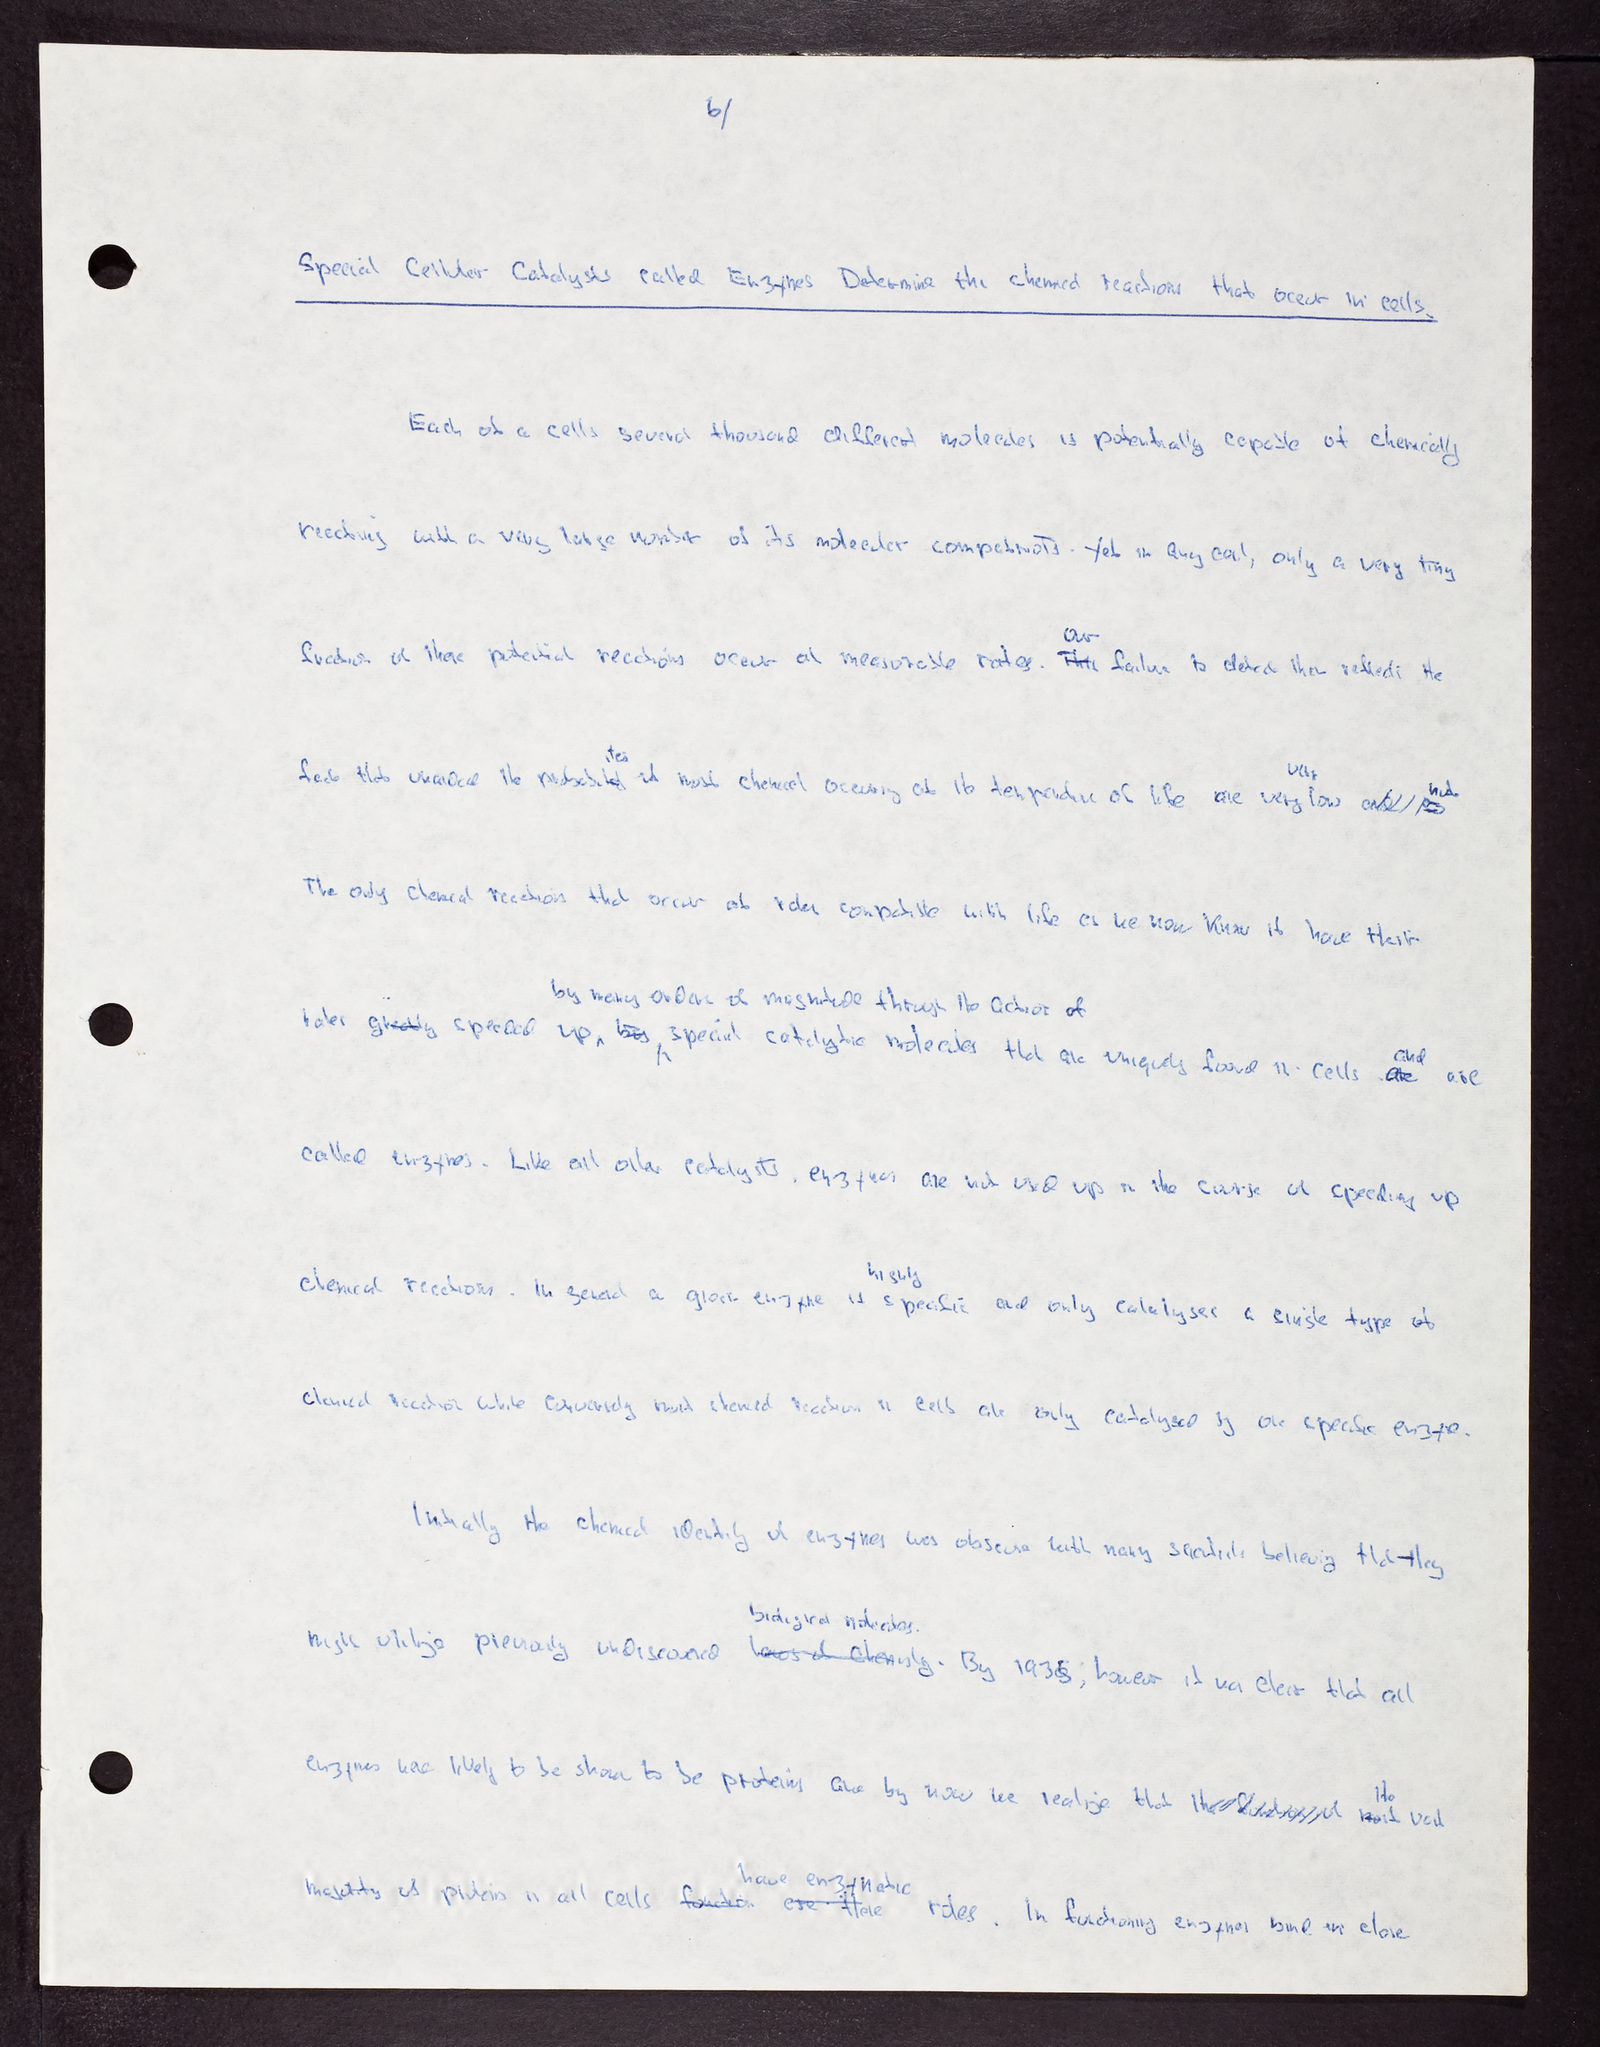 6/
Special Cellular Catalysts called Enzymes Determine the chemical reactions that occur in cells.
Each of a cells several thousand different molecules is potentially capable of chemically
reacting with a very large number of its molecular compatriots. Yet in any cell, only a very tiny
fraction of these potential reactions occur at measurable rates.
Our
The failure to detect them reflects the
fact that unaided the
ites
of most chemical occurring at the temperature of life are
very
very low
The only chemical reactions that occur at rates compatible with life as we now know it have their
by many orders of magnitude through the action of
rates greatly speeded up by special catalytic molecules that are uniquely found in cells
and
are are
called enzymes. Like all other catalysts, enzymes are not used up in the course of speeding up
highly
chemical reactions. In general a given enzyme is specific and only catalyses a single type of
chemical reaction while conversely most chemical reaction in cells are only catalysed by one specific enzyme.
Initially the chemical identity of enzymes was obscure with many scientists believing that they
biological molecules.
might utilize previously undiscovered laws of chemistry. By 1935, however it was clear that all
enzymes were likely to be shown to be proteins and by now we realize that
the
vast
have enzymatic
majority of proteins in all cells function roles. In functioning enzymes bind in close